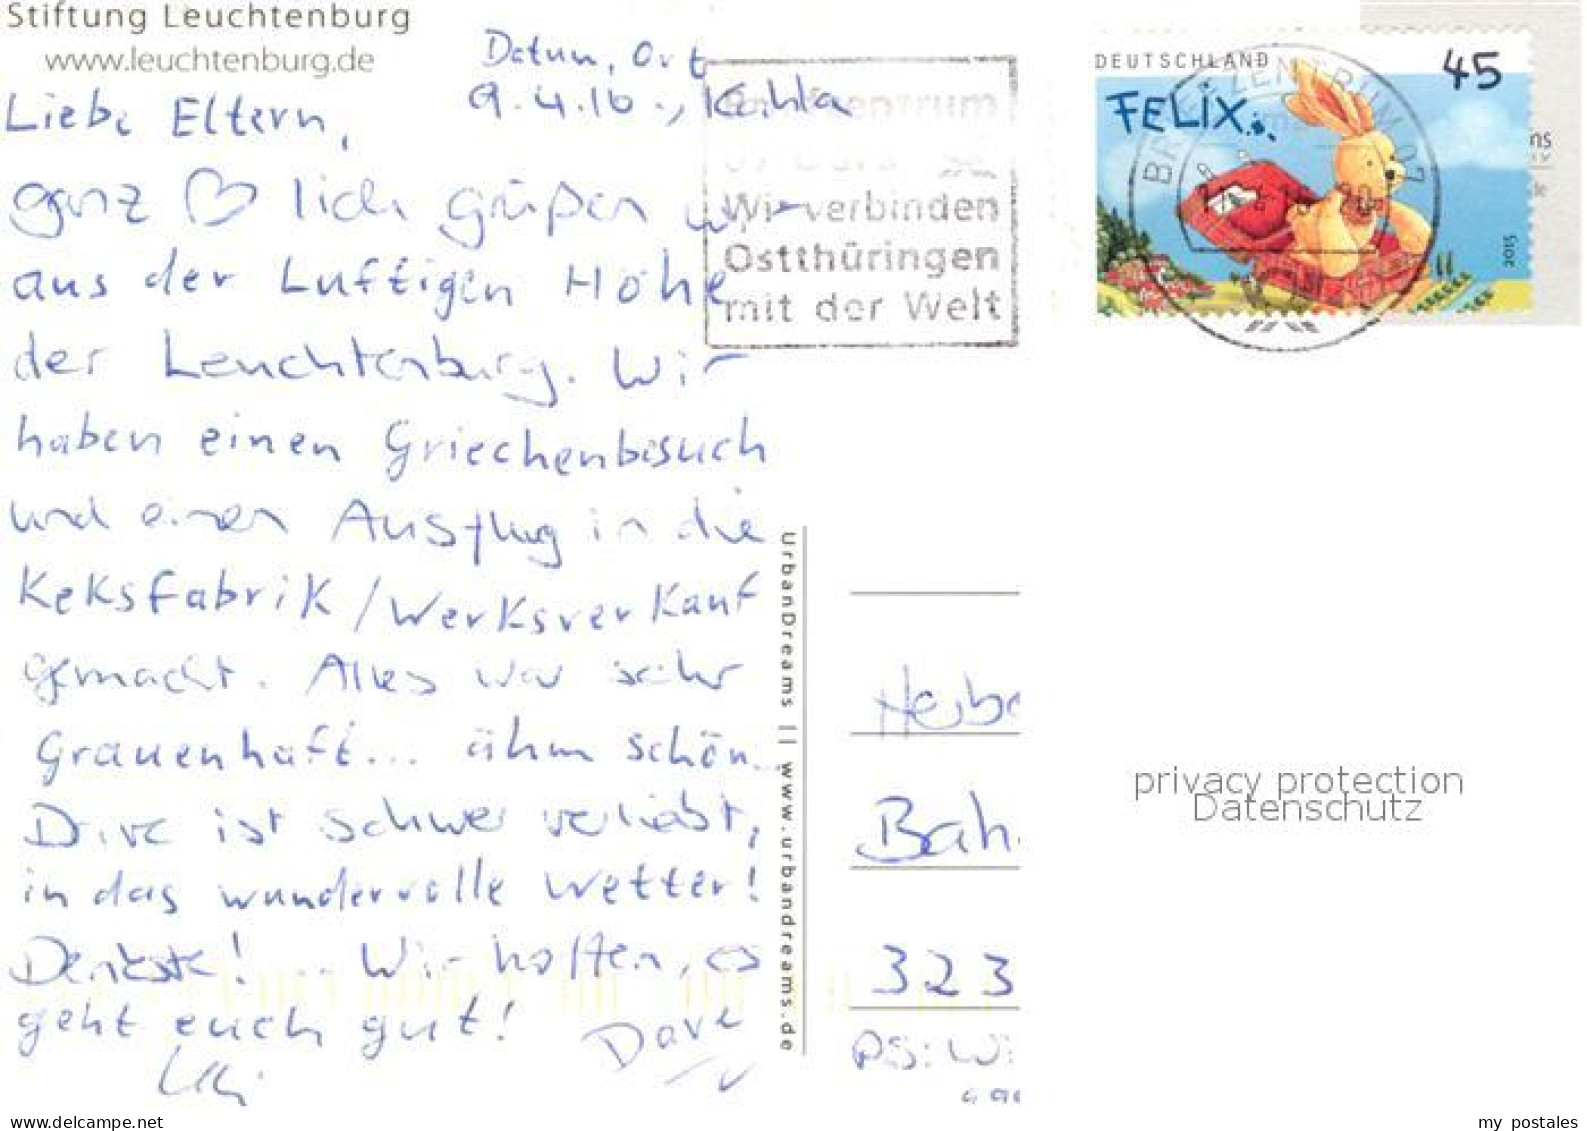 Stiftung Leuchtenburg
www.leuchtenburg.de
Datum, Ort
9.4.16., Kahla
Liebe Eltern,
ganz ♡ lich grüßen wir
aus der Luftigen Höhe
der Leuchtenburg. Wir
haben einen Griechenbesuch
und einen Ausflug in die
Keksfabrik/Werksverkauf
gemacht. Alles war sehr
Grauenhaft... ähm schön.
Dave ist schwer verliebt,
in das wundervolle Wetter!
Denkste! .. Wir hoffen, es
geht euch gut! Dave
Briefzentrum
07
Wir verbinden
Ostthüringen
mit der Welt
DEUTSCHLAND 45
FELIX
2015
BRIEFZENTRUM 07
UrbanDreams || www.urbandreams.de
Bah
323
PS: Wi
privacy protection
Datenschutz
www.delcampe.net
my_postales